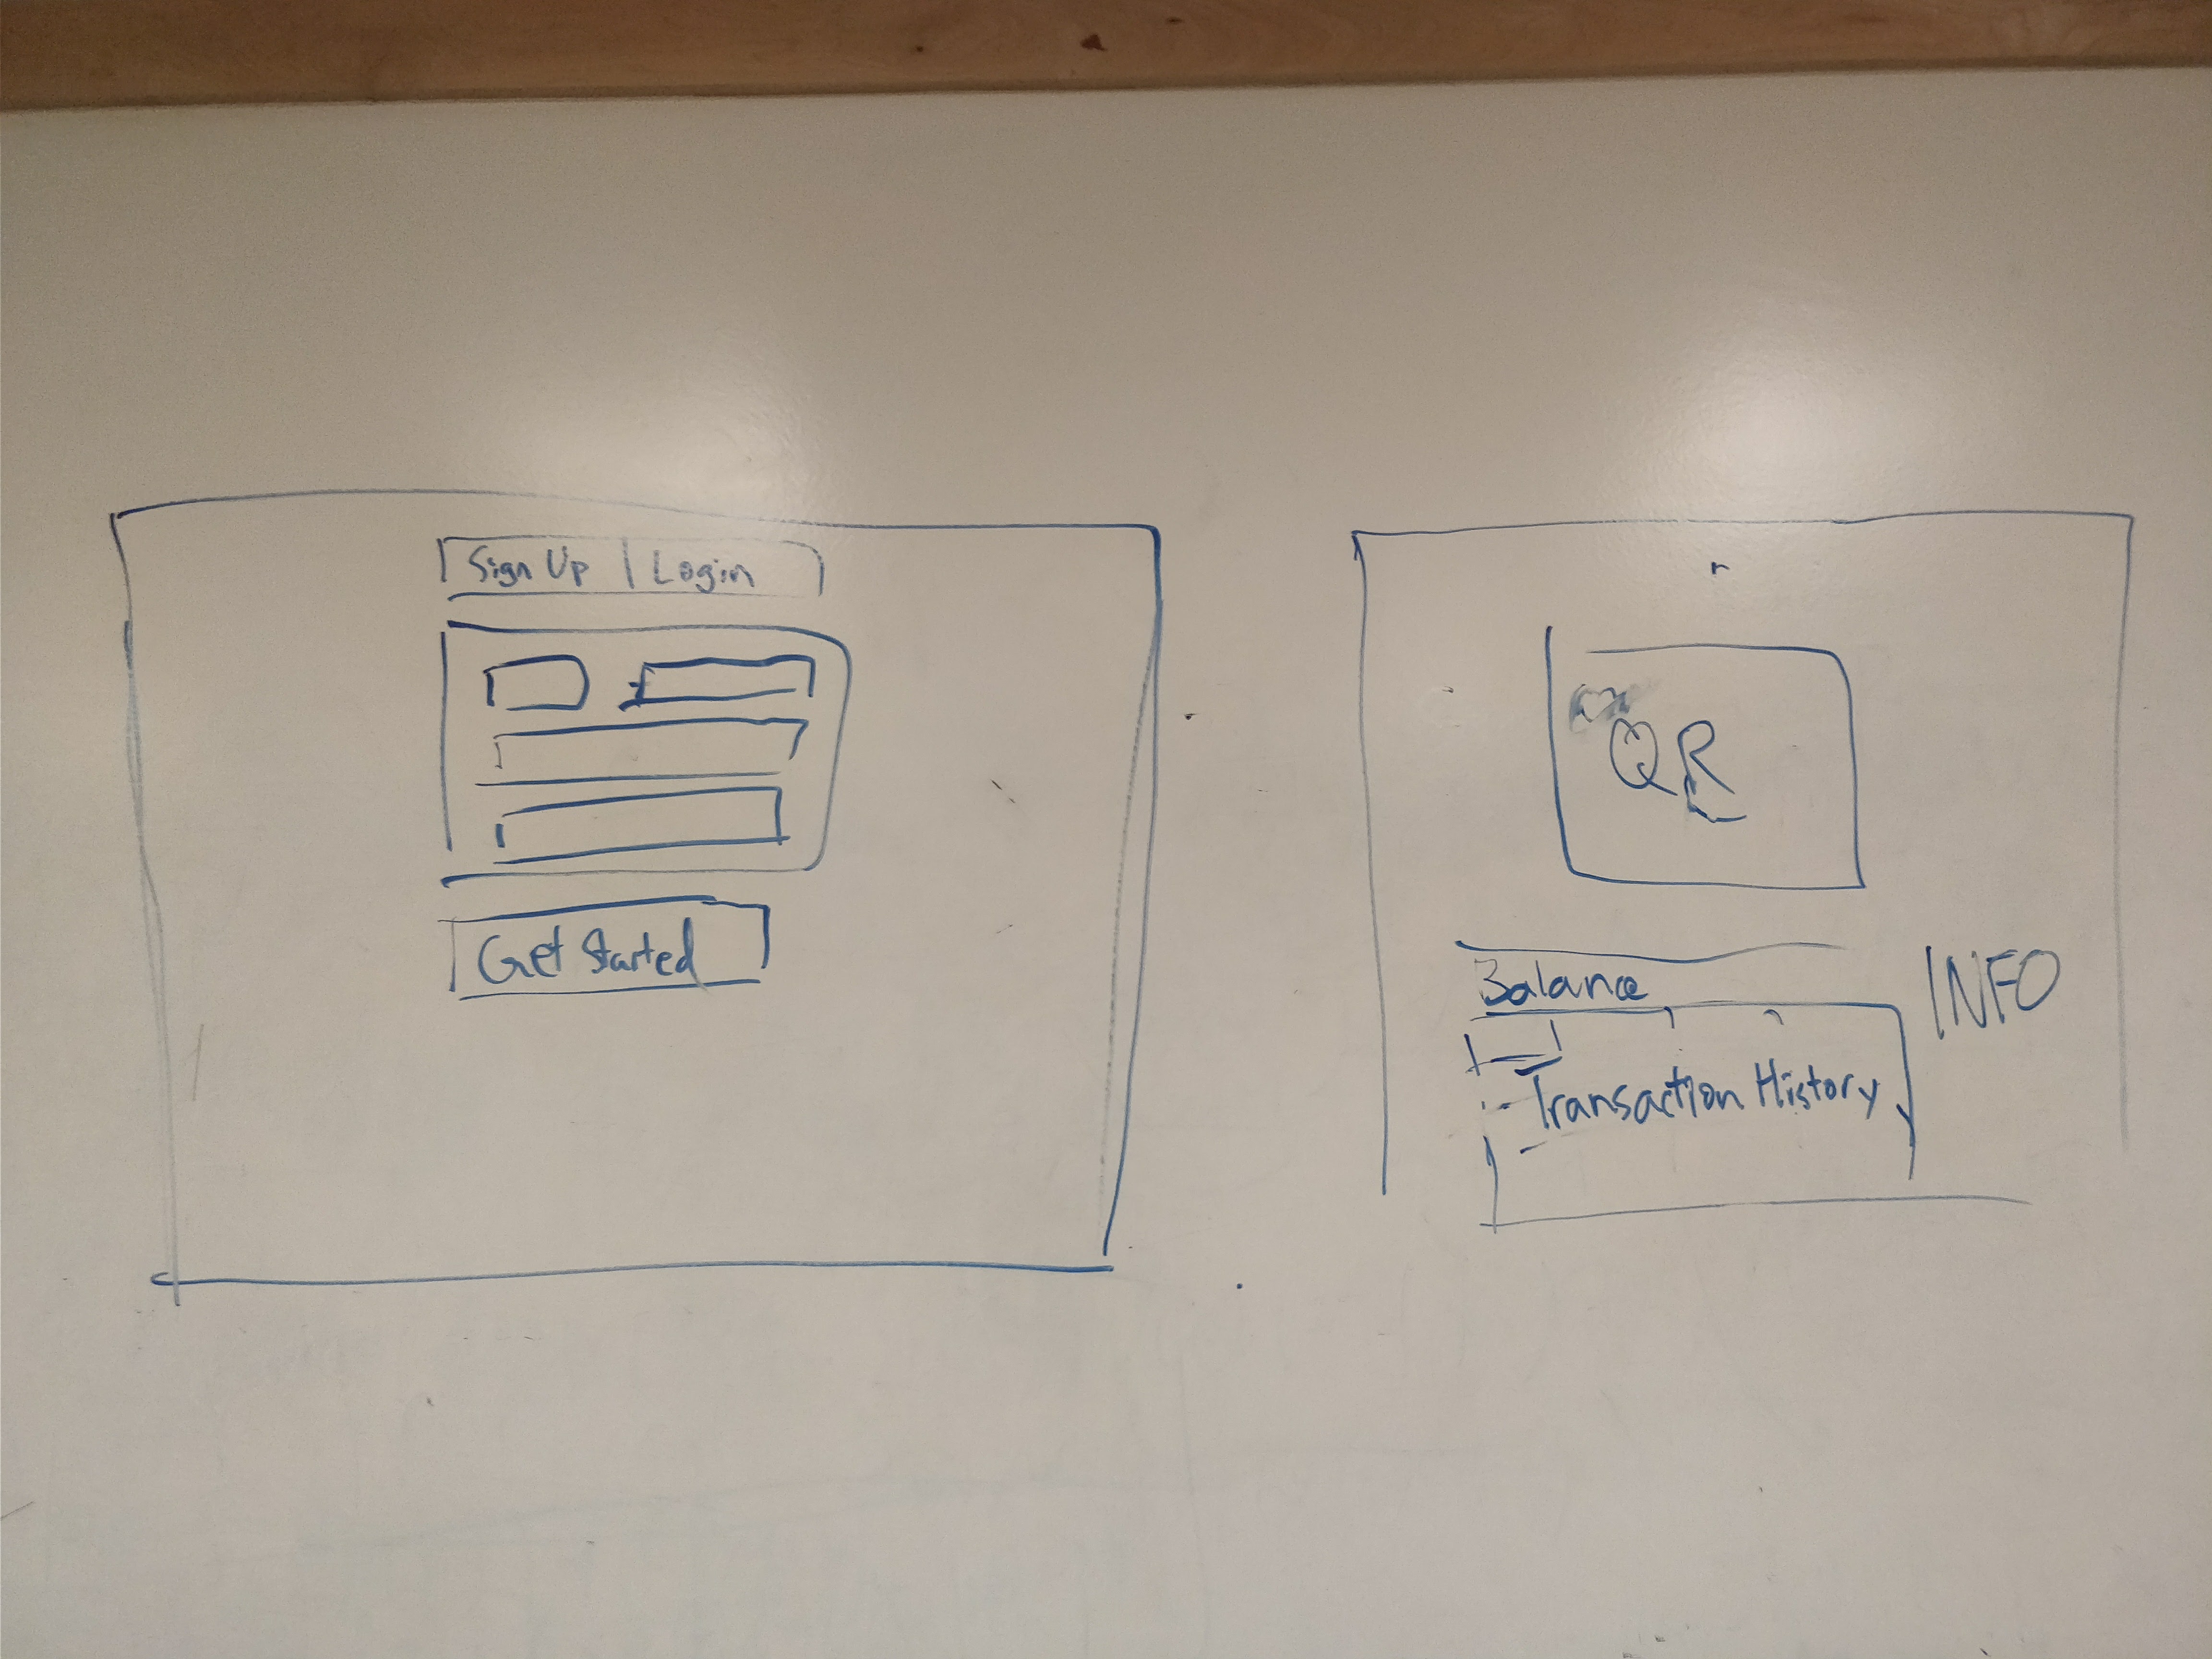 Sign Up | Login
Get Started
QR
Balance
INFO
Transaction History